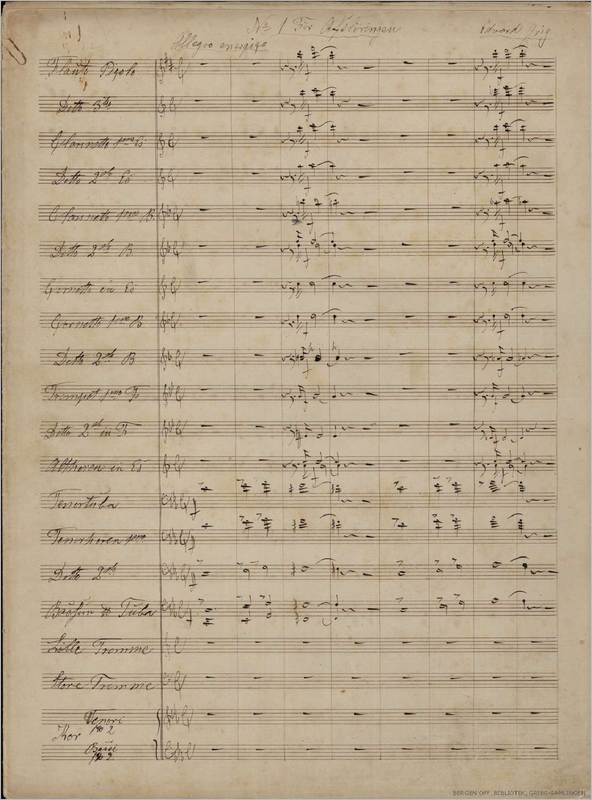 No 1 For
Edvard Grieg
Allegro energico
Flauto Picolo
Ditto 3ts
Clarinetto 1mo Es
Ditto 2do Es
Clarinetto 1mo B
Ditto 2do B
Cornetto in Es
Cornetto 1mo B
Ditto 2do B
Trompet 1mo Es
Ditto 2do in Es
Althoren in Es
Tenortuba
Tenorhoren 1mo
Ditto 2do
Basun & Tuba
Lille Tromme
Store Tromme
Tenori
1 & 2
Kor
Bassi
1 & 2
BERGEN OFF. BIBLIOTEK, GRIEG-SAMLINGEN